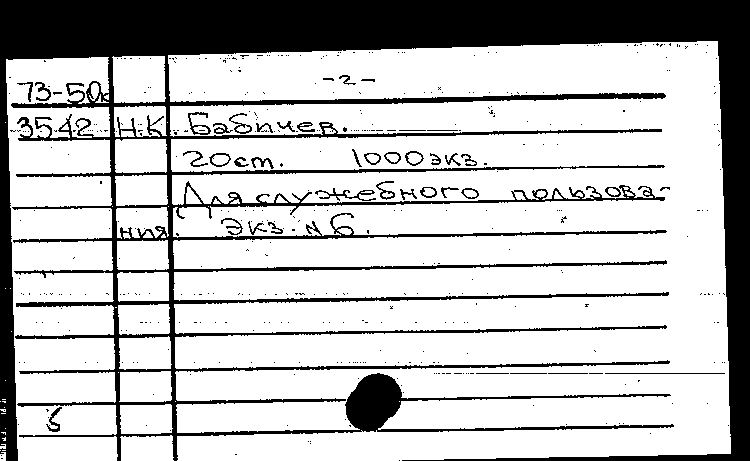 73-50к -2-
3542 Н.К. Бабичев.
20 ст. 1000 экз.
Для служебного пользова-
ния. Экз. N 6.
б